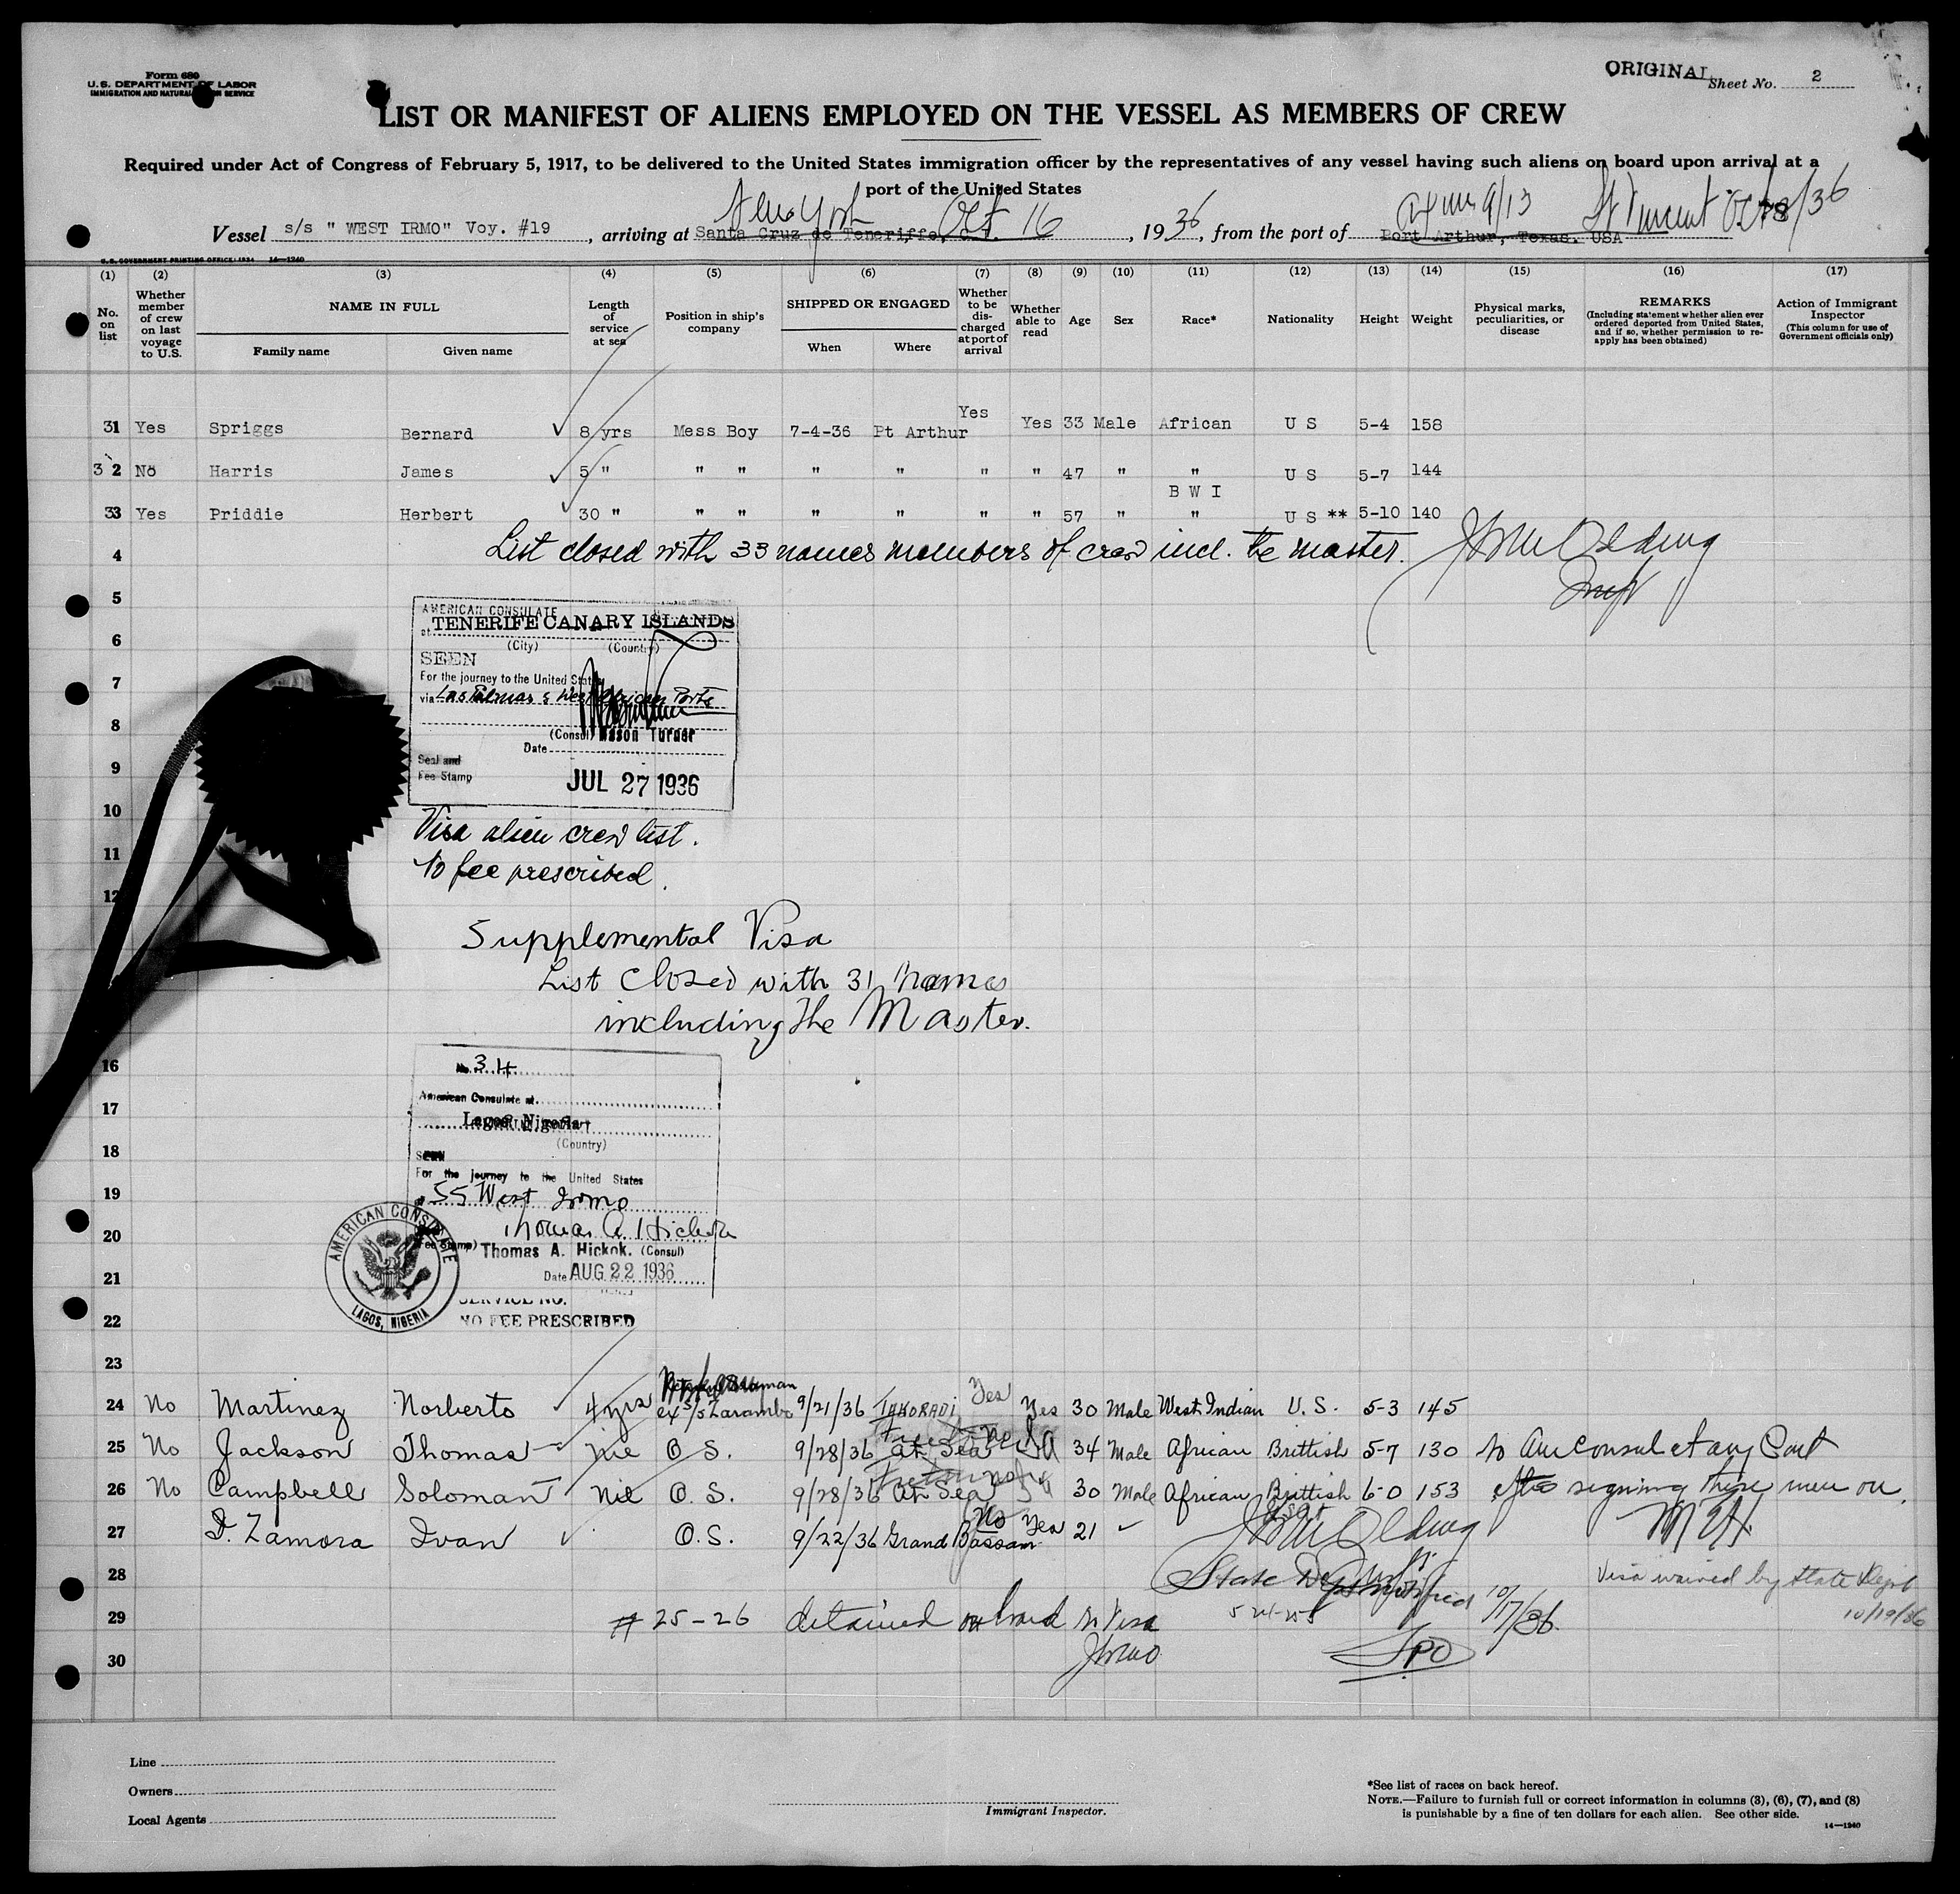 Form 680
U.S. DEPARTMENT OF LABOR
IMMIGRATION AND NATURALIZATION SERVICE
ORIGINAL
Sheet No. 2
LIST OR MANIFEST OF ALIENS EMPLOYED ON THE VESSEL AS MEMBERS OF CREW
Required under Act of Congress of February 5, 1917, to be delivered to the United States immigration officer by the representatives of any vessel having such aliens on board upon arrival at a
port of the United States
New York Oct 16 9/13 St Vincent Oct 8/36
Vessel s/s " WEST IRMO" Voy. #19, arriving at Santa Cruz de Teneriffe, 1936, from the port of Port Arthur, Texas. USA
U.S. GOVERNMENT PRINTING OFFICE: 1934 14—1240
(1) (2) (3) (4) (5) (6) (7) (8) (9) (10) (11) (12) (13) (14) (15) (16) (17)
No. on list
Whether member of crew on last voyage to U.S.
NAME IN FULL
Family name
Given name
Length of service at sea
Position in ship's company
SHIPPED OR ENGAGED
When
Where
Whether to be discharged at port of arrival
Whether able to read
Age
Sex
Race*
Nationality
Height
Weight
Physical marks, peculiarities, or disease
REMARKS
(Including statement whether alien ever ordered deported from United States, and if so, whether permission to reapply has been obtained)
Action of Immigrant Inspector
(This column for use of Government officials only)
31 Yes Spriggs Bernard 8 yrs Mess Boy 7-4-36 Pt Arthur Yes Yes 33 Male African U S 5-4 158
32 No Harris James 5 " " " " " " " 47 " " U S 5-7 144
B W I
33 Yes Priddie Herbert 30 " " " " " " " 57 " " U S ** 5-10 140
4 List closed with 33 names members of crew incl. the master.
5
6
7
8
9
10
11
12
AMERICAN CONSULATE
at TENERIFE CANARY ISLANDS
(City) (Country)
SEEN
For the journey to the United States
via Las Palmas & West African Ports
(Consul) Mason Turner
Date
Seal and
Fee Stamp
JUL 27 1936
Visa alien crew list.
No fee prescribed.
Supplemental Visa
List closed with 31 names
including the Master.
16
17
18
19
20
21
22
23
No. 34
American Consulate at
Lagos, Nigeria
(Country)
SEEN
For the journey to the United States
SS West Irmo
Thomas A. Hickok
Fee Stamp) Thomas A. Hickok. (Consul)
Date AUG 22 1936
AMERICAN CONSULATE
LAGOS, NIGERIA
SERVICE NO.
NO FEE PRESCRIBED
24 No Martinez Norberto 4 yrs ex s/s Zarembo 9/21/36 TAKORADI Yes Yes 30 Male West Indian U.S. 5-3 145
25 No Jackson Thomas nil O S. 9/28/36 at Sea 34 Male African Brittish 5-7 130 No Am Consul at any Port
26 No Campbell Soloman Nil O. S. 9/28/36 At Sea 30 Male African Brittish 6-0 153 after signing these men on.
27 D. Zamora Ivan O.S. 9/22/36 Grand Bassam No Yes 21
28 State Dept notified 10/17/36. Visa waived by State Dept
10/19/36
29 # 25-26 detained on board no Visa
30
Line
Owners
Local Agents
Immigrant Inspector.
*See list of races on back hereof.
NOTE.—Failure to furnish full or correct information in columns (3), (6), (7), and (8)
is punishable by a fine of ten dollars for each alien. See other side.
14—1240